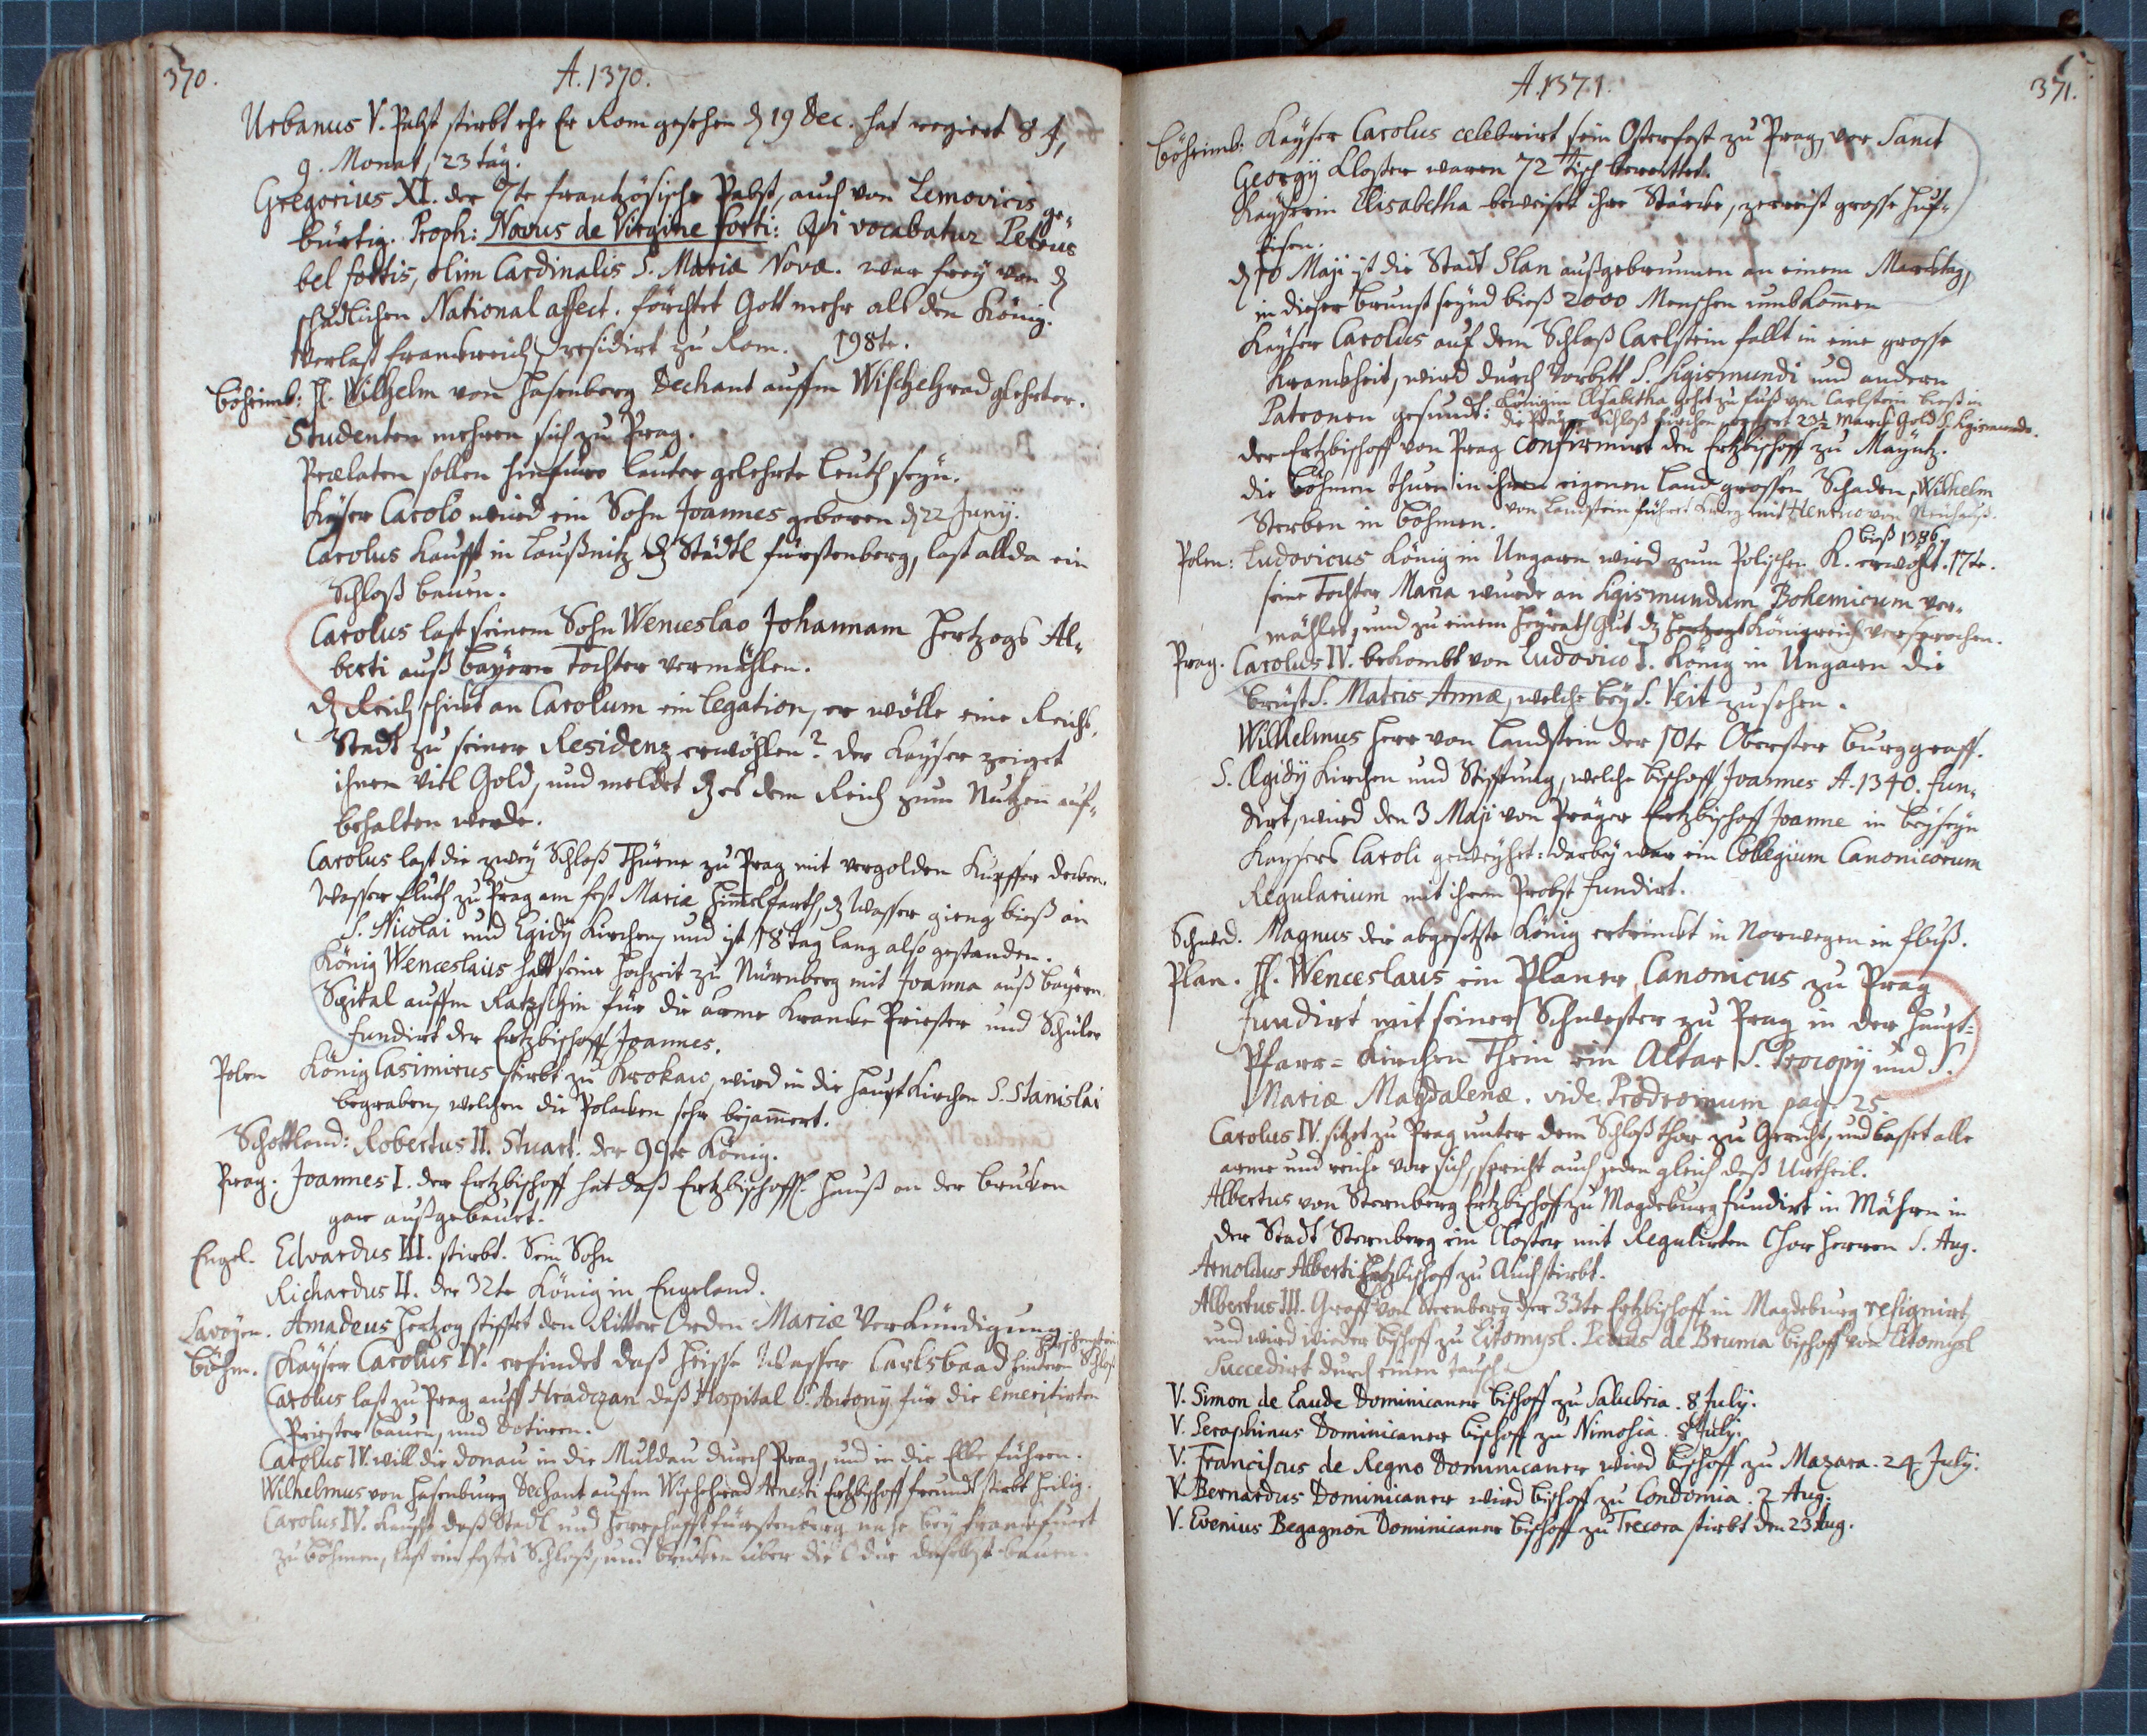 370.
A. 1370.
Urbanus V. Pabst stirbt ehe Er Rom gesehen dz 19 Dec. hat regiert 8 J,
9. Monat, 23 täg.
Gregorius XI. der 7te frantzösische Pabst, auch von Lemovicis ge-
bürtig. Proph: Novus de Virgine forti: Qui vocabatur Petrus
bel fortis, olim Cardinalis S. Mariæ Novæ. war frey von dz
schädlichen National affect. förchtet Gott mehr als den König.
Verlast franckreich, residirt zu Rom. 198te.
Böheimb: H. Wilhelm von Hasenberg Dechant auffm Wischehrad gelehrter.
Studenten mehren sich zu Prag.
Prælaten sollen hinfuro lauter gelehrte leuth seyn.
Kayser Carolo wird ein Sohn Joannes geboren dz 22 Junij.
Carolus kaufft in Laußnitz dz Städtl fürstenberg, last allda ein
Schloß bauen.
Carolus last seinem Sohn Wenceslao Johannam Hertzogs Al-
berti auß Bayern Tochter vermählen.
dz Reich schickt an Carolum ein legation, er wölle eine Reichs-
Stadt zu seiner Residenz erwöhlen? der Kayser zeiget
ihnen viel Gold, und meldet dz es dem Reich zum Nutzen auf-
behalten werde.
Carolus last die zwey Schloß Thürne zu Prag mit vergolden Kupffer decken.
Wasser fluth zu Prag am fest Mariæ Himmelfarth, dz Wasser gieng bieß an
S. Nicolai und Egidij Kirchen, und ist 18 tag lang also gestanden.
König Wenceslaus halt seine Hochzeit zu Nürnberg mit Joanna auß Bayern.
Spital auffm Ratzschin für die arme Krancke Priester und Schüler
fundirt der Ertzbischoff Joannes.
Polen König Casimirus stirbt zu Krokau, wird in die Haupt Kirchen S. Stanislai
begraben, welchen die Polacken sehr bejammert.
Schottland: Robertus II. Stuart. der 99te König.
Prag. Joannes I. der Ertzbischoff hat daß Ertzbischoffl. Hauß an der brucken
gar außgebauet.
Engel. Edvardus III. stirbt. Sein Sohn
Richardus II. der 32te König in Engeland.
Savoyen. Amadeus Hertzog stifftet den Ritter Orden Mariæ Verkündigung
Böhm. Kayser Carolus IV. erfindet daß heisse Wasser Carlsbaad hindern Schloß
Carolus last zu Prag auff Hradczan daß Hospital S. Antonij für die emeritirten
Priester bauen, und dotiren.
Carolus IV. will die Donau in die Muldau durch Prag, und in die Elbe führen.
Wilhelmus von Hasenburg Dechant auffm Wischehrad Arnesti Ertzbischoff freundt stirbt heilig.
Carolus IV. Kaufft daß Stadl und Herrschafft fürstenberg nahe bey franckfurt
zu böhmen, last ein festes Schloß, und brucken über die Oder daselbst bauen.
A. 1371.
371.
Böheimb: Kayser Carolus celebrirt sein Osterfest zu Prag, vor Sanct
Georgij Closter waren 72 tisch bereittet.
Kayserin Elisabetha beweiset ihre Stärcke, zerreist grosse Huf-
Eisen.
dz 10 Maji ist die Stadt Slan außgebrunnen an einem Marcktag,
in dieser brunst seynd bieß 2000 Menschen umbkommen
Kayser Carolus auf dem Schloß Carlstein fallt in eine grosse
Kranckheit, wird durch Vorbitt S. Sigismundi und andern
Patronen gesundt: Königin Elisabetha gehet zu fuß von Carlstein bieß in
die Prager Schloß Kirchen opfert 23½ Marck Gold S. Sigismundo.
der Ertzbischoff von Prag confirmirt den Ertzbischoff zu Mayntz.
die Böhmen thuen in ihren eigenen land grossen Schaden, Wilhelm
Sterben in böhmen. von Landstein führet Krieg mit Henrico von Neuhauß.
bieß 1386.
Polen: Ludovicus König in Ungarn wird zum Polischen K. erwöhlt. 17te.
seine Tochter Maria wurde an Sigismundum Bohemicum ver-
mählet, und zu einem Heyrath Gut dz Königreich versprochen.
Prag. Carolus IV. bekombt von Ludovico I. König in Ungarn die
brust S. Matris Annæ, welche bey S. Veit zu sehen.
Wilhelmus Herr von Landstein der 10te Oberster burggraff.
S. Ægidij Kirchen und Stifftung, welche bischoff Joannes A. 1340. fun-
dirt, wird den 3 Maji von Prager Ertzbischoff Joanne in beyseyn
Kaysers Caroli geweyhet: darbey war ein Collegium Canonicorum
Regularium mit ihrem Probst fundirt.
Schwed. Magnus der abgesetzte König ertrinckt in Norwegen in fluß.
Plan. H. Wenceslaus ein Planer, Canonicus zu Prag
fundirt mit seiner Schwester zu Prag in der Haupt-
Pfarr-Kirchen Thein ein Altar S. Procopij und S.
Mariæ Magdalenæ. vide Prodromum pag. 25.
Carolus IV. sitzet zu Prag unter dem Schloß thor zu Gericht, und lasset alle
arme und reiche vor sich, spricht auch jeden gleich daß Urtheil.
Albertus von Sternberg Ertzbischoff zu Magdeburg fundirt in Mähren in
der Stadt Sternberg ein Closter mit Regulirten Chor Herren S. Aug.
Arnoldus Alberti Ertzbischoff zu Auch stirbt.
Albertus III. Graff von Sternberg der 33te Ertzbischoff in Magdeburg resignirt,
und wird wieder bischoff zu Litomysl. Petrus de Bruma bischoff von Litomysl
Succedirt durch einen tausch.
V. Simon de Laude Dominicaner bischoff zu Salubria. 8 Julij.
V. Seraphinus Dominicaner bischoff zu Nimosia. 8 Julij.
V. Franciscus de Regno Dominicaner wird bischoff zu Mazara. 24 Julij.
V. Bernardus Dominicaner wird bischoff zu Condomia. 2 Aug.
V. Evenius Begagnon Dominicaner bischoff zu Trecora stirbt den 23 Aug.